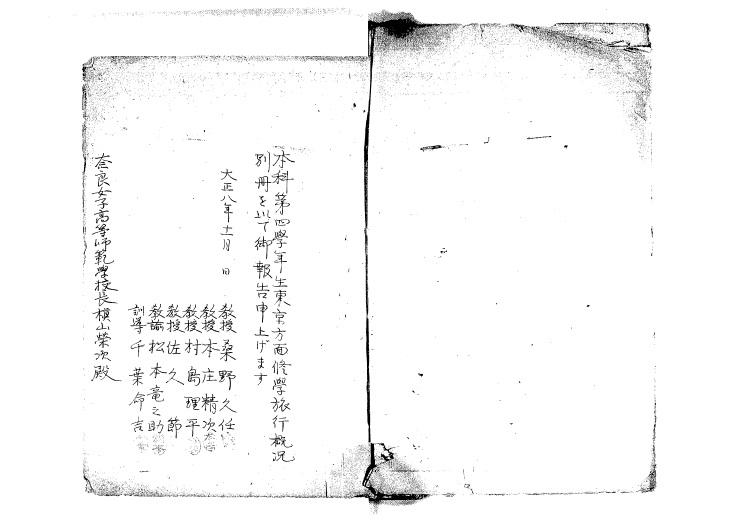 本科第四學年生東京方面修學旅行概況
別冊を以て御報告申上げます
大正八年十一月 日
教授桑野久任
教授本庄精次
教授村島理平
教授佐久節
教諭松本竜之助
訓導千葉命吉
奈良女子高等師範學校長槇山榮次殿